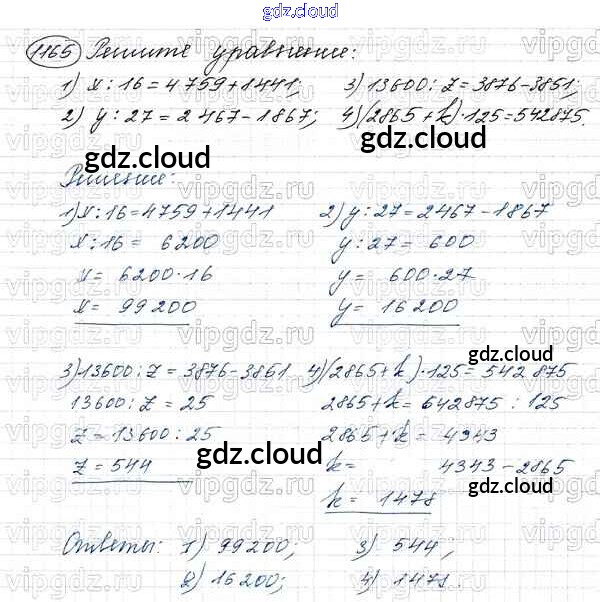 gdz.cloud
1165 Решите уравнение:
1) x:16=4759+1441; 3) 13600:z=3876-3851;
2) y:27=2467-1867; 4) (2865+k)·125=542875.
gdz.cloud gdz.cloud
Решение:
1) x:16=4759+1441 2) y:27=2467-1867
x:16= 6200 y:27= 600
x= 6200·16 y= 600·27
x= 99200 y= 16200
gdz.cloud
3) 13600:z=3876-3851 4) (2865+k)·125=542875
13600:z=25 2865+k=542875:125
z=13600:25 2865+k=4343
z=544 k= 4343-2865
gdz.cloud gdz.cloud
k= 1478
Ответы: 1) 99200; 3) 544;
2) 16200; 4) 1478.
gdz.cloud gdz.cloud